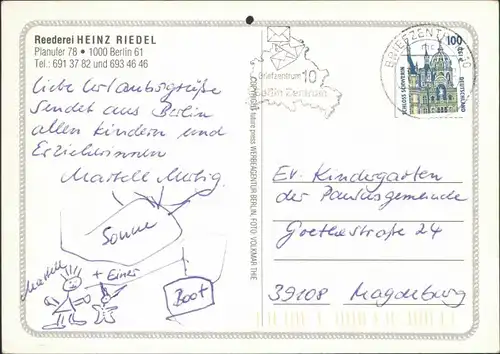 Reederei HEINZ RIEDEL
Planufer 78 • 1000 Berlin 61
Tel.: 691 37 82 und 693 46 46
Liebe Urlaubsgrüße
Sendet aus Berlin
allen Kindern und
Erzieherinnen
Martell
Sonne
Martell
+ Einer
Boot
BRIEFZENTRUM 10
Briefzentrum 10
Berlin Zentrum
100
DEUTSCHE BUNDESPOST
SCHLOSS SCHWERIN
press WERBEAGENTUR BERLIN, FOTO: VOLKMAR THIE
Ev. Kindergarten
der Paulusgemeinde
Goethestraße 24
39108 Magdeburg